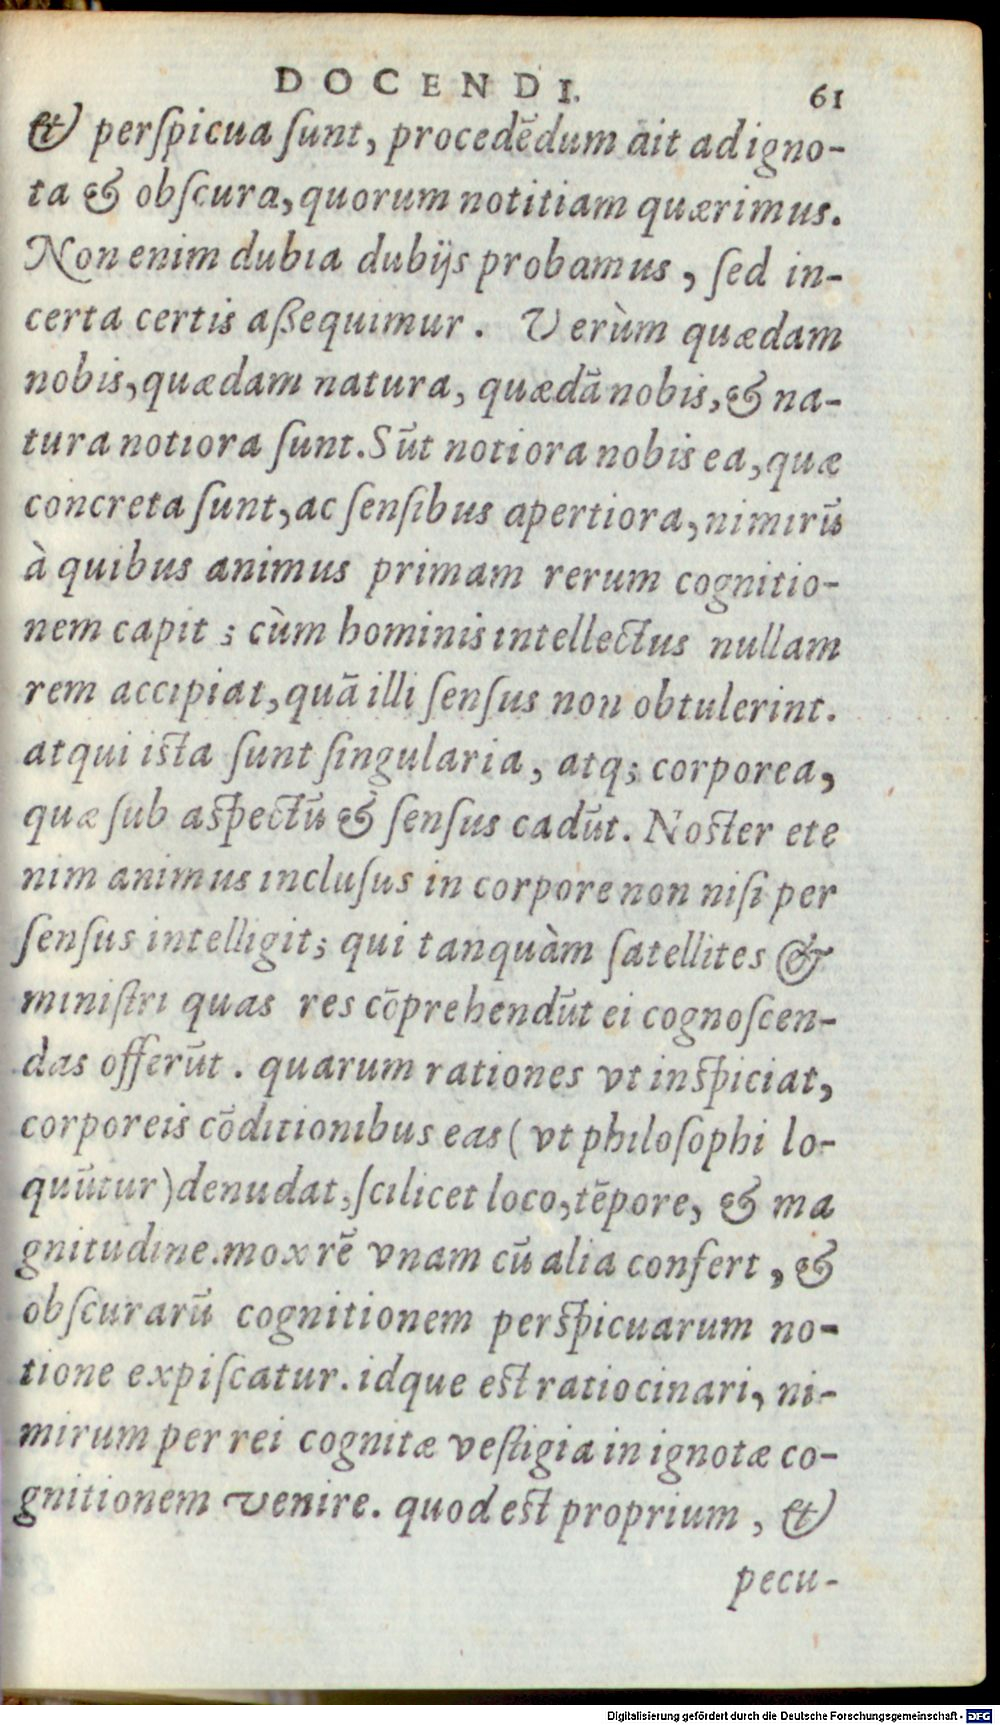 DOCENDI. 61
& perſpicua ſunt, procedẽdum ait ad igno-
ta & obſcura, quorum notitiam quærimus.
Non enim dubia dubijs probamus, ſed in-
certa certis aßequimur. Verùm quædam
nobis, quædam natura, quædã nobis, & na-
tura notiora ſunt. Sũt notiora nobis ea, quæ
concreta ſunt, ac ſenſibus apertiora, nimirũ
à quibus animus primam rerum cognitio-
nem capit; cùm hominis intellectus nullam
rem accipiat, quã illi ſenſus non obtulerint.
atqui iſta ſunt ſingularia, atq; corporea,
quæ ſub aſpectũ & ſenſus cadũt. Noſter ete
nim animus incluſus in corpore non niſi per
ſenſus intelligit; qui tanquàm ſatellites &
miniſtri quas res cõprehendũt ei cognoſcen-
das offerũt. quarum rationes vt inſpiciat,
corporeis cõditionibus eas (vt philoſophi lo-
quũtur) denudat, ſcilicet loco, tẽpore, & ma
gnitudine. mox rẽ vnam cũ alia confert, &
obſcurarũ cognitionem perſpicuarum no-
tione expiſcatur. idque eſt ratiocinari, ni-
mirum per rei cognitæ veſtigia in ignotæ co-
gnitionem venire. quod eſt proprium, &
pecu-
Digitalisierung gefördert durch die Deutsche Forschungsgemeinschaft - DFG